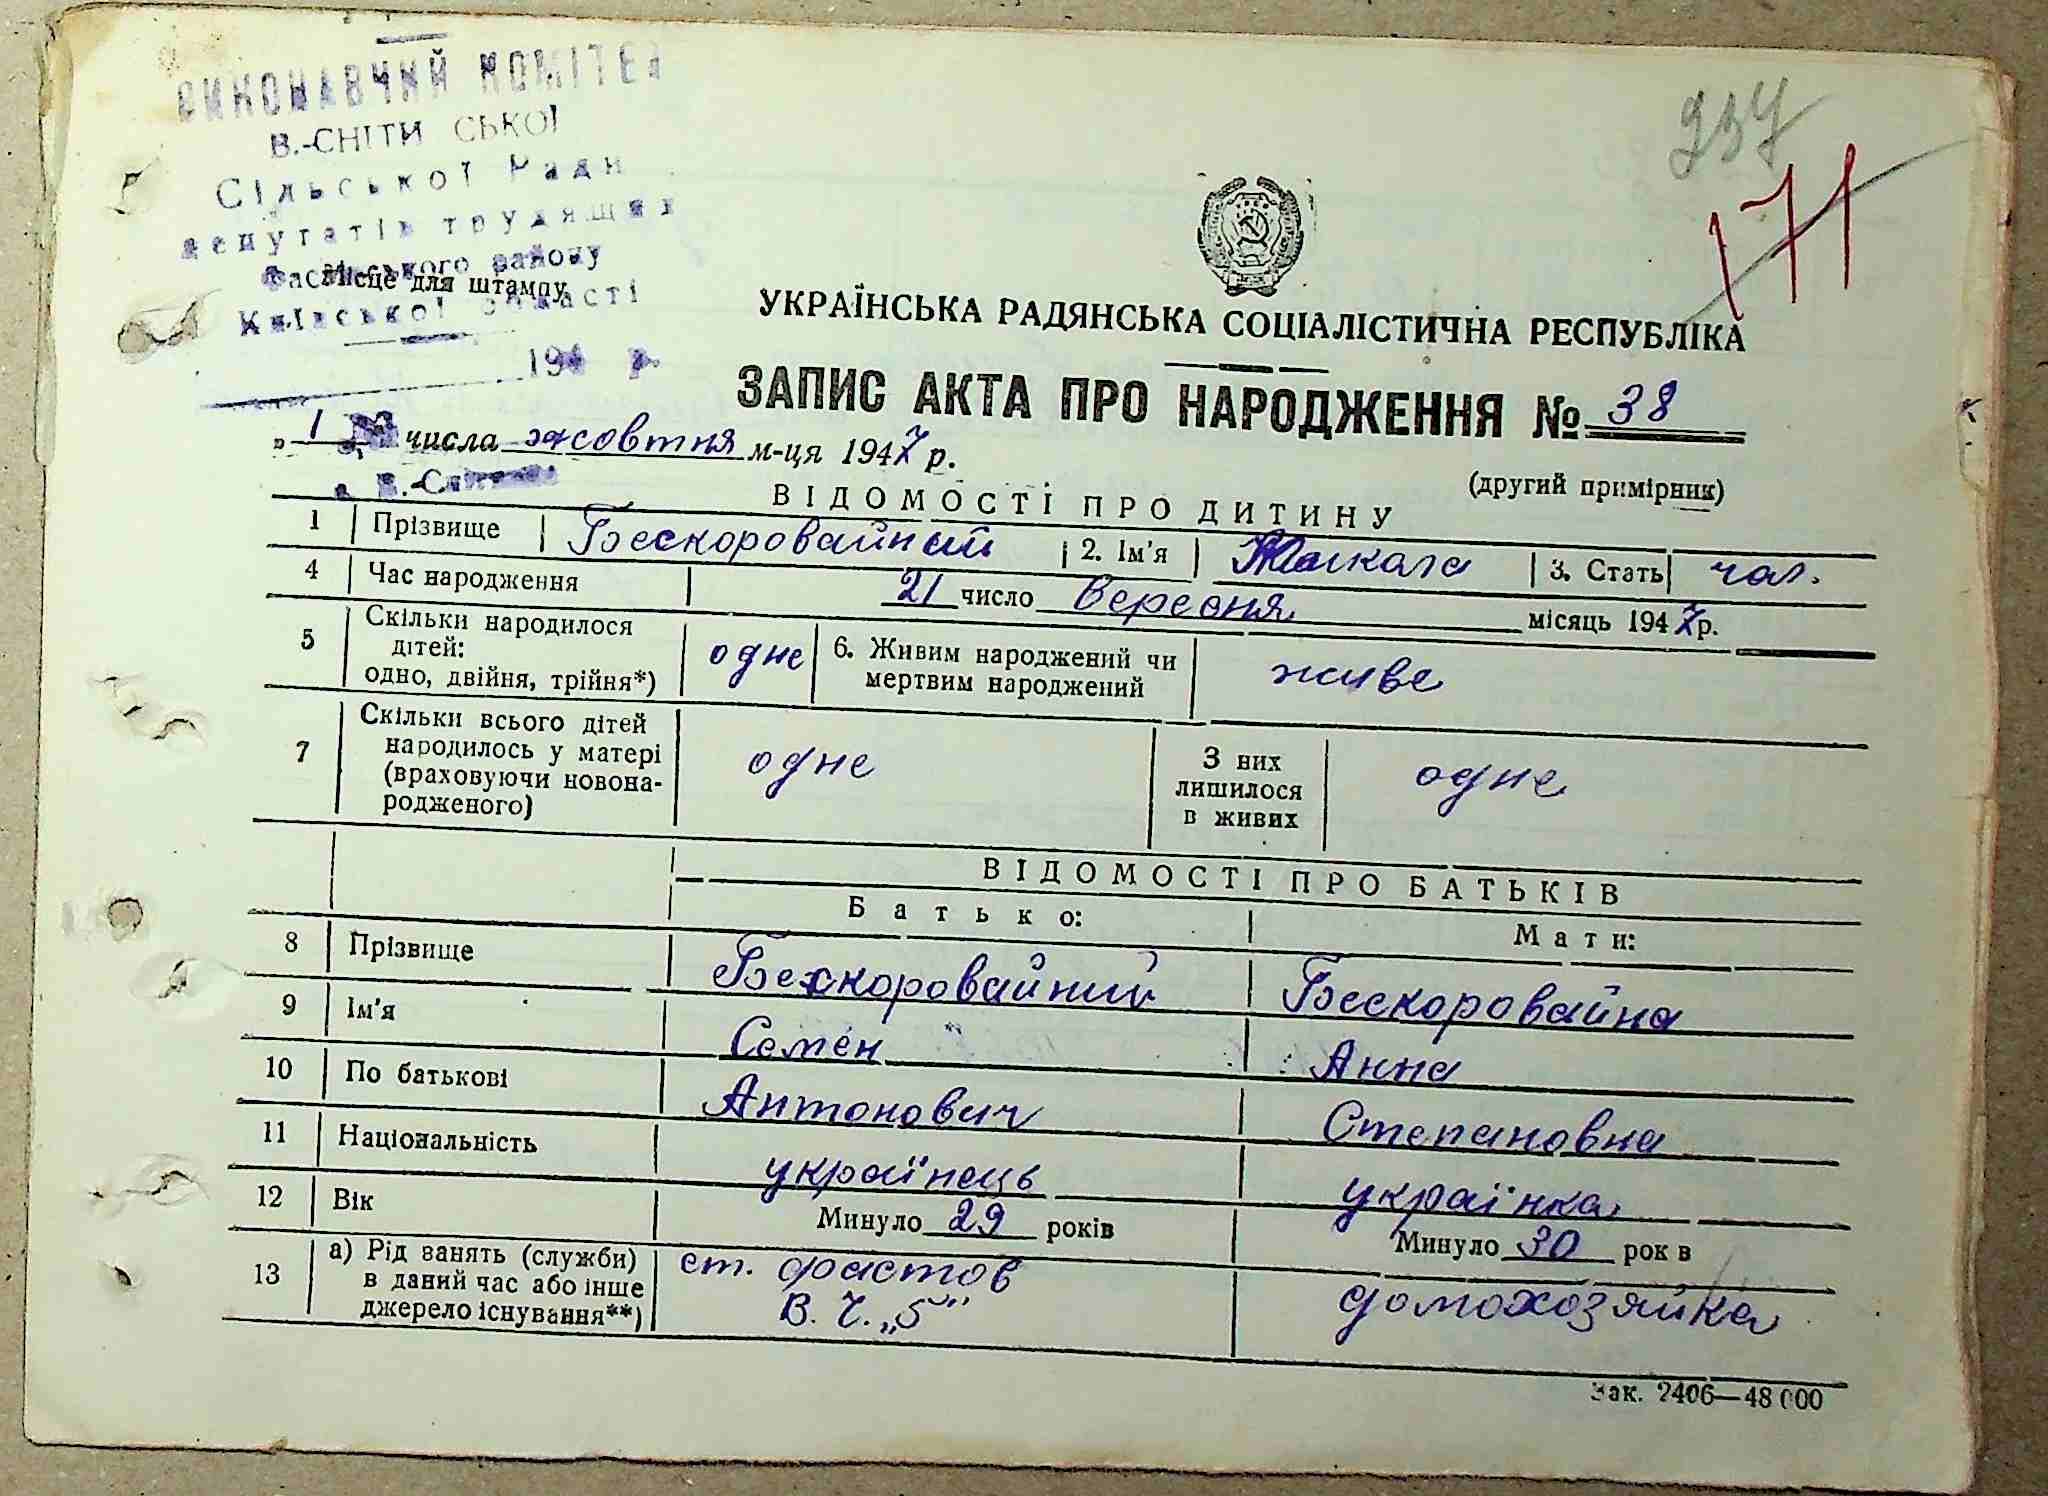 ВИКОНАВЧИЙ КОМІТЕТ
В.-СНІТИ СЬКОЇ
Сільської Ради
депутатів трудящих
Фастівського району
Місце для штампу
Київської області
194 р.
237
171
УКРАЇНСЬКА РАДЯНСЬКА СОЦІАЛІСТИЧНА РЕСПУБЛІКА
ЗАПИС АКТА ПРО НАРОДЖЕННЯ № 38
„ 1 " числа жовтня м-ця 1947 р.
(другий примірник)
ВІДОМОСТІ ПРО ДИТИНУ
1 Прізвище Бескоровайний 2. Ім'я Микола 3. Стать чол.
4 Час народження 21 число Вересня місяць 1947 р.
5 Скільки народилося дітей: одно, двійня, трійня*) одне 6. Живим народжений чи мертвим народжений живе
7 Скільки всього дітей народилось у матері (враховуючи новонародженого) одне З них лишилося в живих одне
ВІДОМОСТІ ПРО БАТЬКІВ
Батько: Мати:
8 Прізвище Бескоровайний Бескоровайна
9 Ім'я Семен Анна
10 По батькові Антонович Степановна
11 Національність українець українка
12 Вік Минуло 29 років Минуло 30 рок в
13 а) Рід занять (служби) в даний час або інше джерело існування**) ст. Фастов В. Ч. „5" домохозяйка
Зак. 2406—48 000